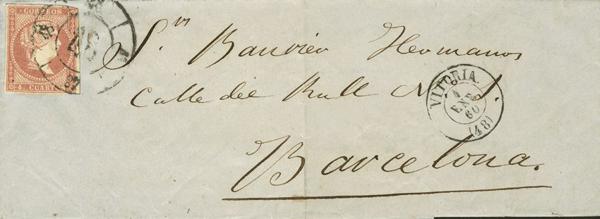 CORREOS
4 CUART
Sres
Hermanos
Calle del Bull N
Barcelona.
VITORIA.
4
ENE
60
(48)